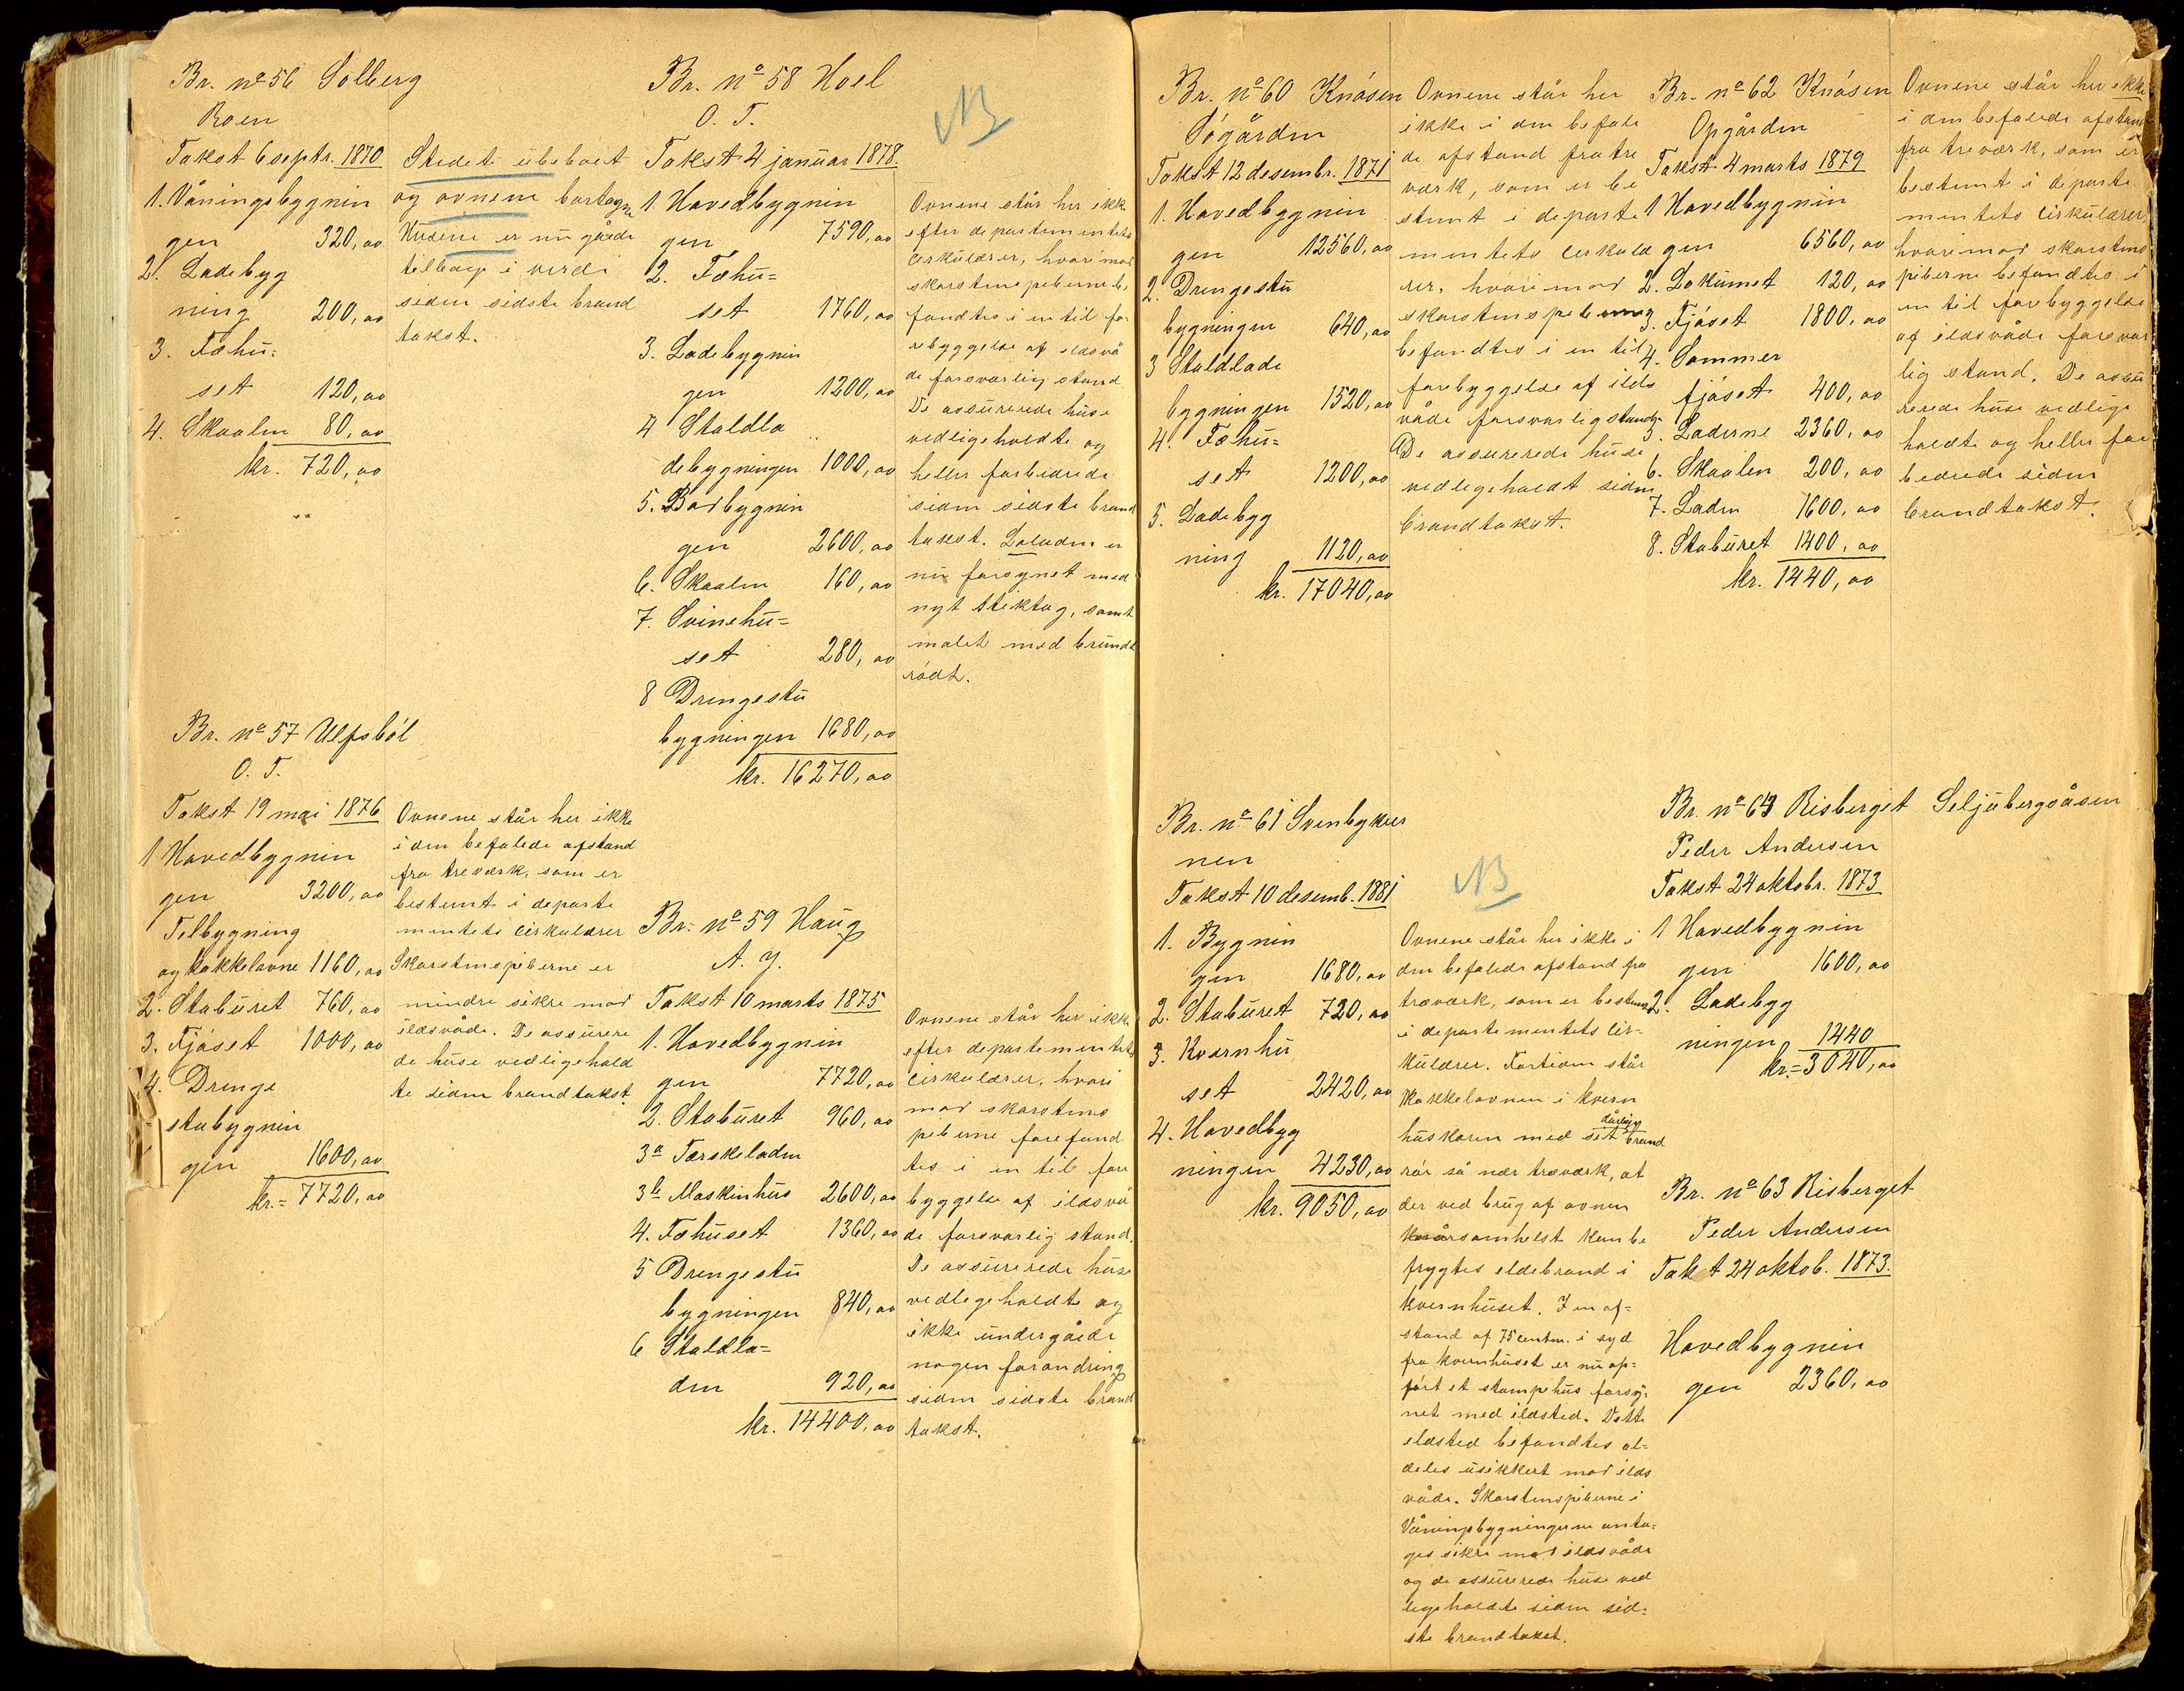 Br. nº 56 Solberg
Roen
Takst 6 septr. 1870
1. Våningsbyggnin
gen 320,00
2. Ladebyg
ning 200,00
3. Fæhu=
set 120,00
4. Skaalen 80,00
kr. 720,00
Stedet ubeboet
og ovnene borttagne
Husene er nu gåede
tilbage i verdi
siden sidste brand
takst.
Br. nº 57 Ulfsböl
O. T.
Takst 19 mai 1876
1 Hovedbyggnin
gen 3200,00
Tilbygning
og kakkelovne 1160,00
2. Staburet 760,00
3. Fjöset 1000,00
4. Drenge
stubygnin
gen 1600,00
kr.= 7720,00
Ovnene står her ikke
i den befalede afstand
fra treværk, som er
bestemt i departe
mentets cirkulærer
Skorstenspiberne er
mindre sikre mod
ildsvåde. De assurere
de huse vedligehold
te siden brandtakst.
Br. nº 58 Hoel
O. T.
Takst 4 januar 1878.
1. Hovedbygnin
gen 7590,00
2. Fæhu=
set 1760,00
3. Ladebygnin
gen 1200,00
4 Staldla
debygningen 1000,00
5. Borbygnin
gen 2600,00
6. Skaalen 160,00
7. Svinehu=
set 280,00
8 Drengestu
bygningen 1680,00
kr. 16270,00
NB
Ovnene står her ikke
efter departementets
cirkulærer, hvorimod
skorstenspiberne be
fandtes i en til fo
rebyggelse af ildsvå
de forsvarlig stand.
De assurerede huse
vedligeholdte og
heller forbedrede
siden sidste brand
takst. Loladen er
nu forsynet med
nyt stiktag, samt
malet med brundt
rödt.
Br. nº 59 Haug
A. Y.
Takst 10 marts 1875
1. Hovedbygnin
gen 7720,00
2. Staburet 960,00
3a Tærskeladen
3b Maskinhus 2600,00
4. Fæhuset 1360,00
5 Drengestu
bygningen 840,00
6 Staldla=
den 920,00
kr. 14400,00
Ovnene står her ikke
efter departementets
cirkulærer, hvori
mod skorstens
piberne forefand
tes i en til fore
byggelse af ildsvå
de forsvarlig stand.
De assurerede huse
vedligeholdte og
ikke undergåede
nogen forandring
siden sidste brand
takst.
Br. nº 60 Knåsen
Sögården
Takst 12 desembr. 1871
1. Hovedbygnin
gen 12560,00
2. Drengestu
bygningen 640,00
3 Staldlade
bygningen 1520,00
4. Fæhu=
set 1200,00
5. Ladebyg
ning 1120,00
kr. 17040,00
Ovnene står her
ikke i den befale
de afstand fra tre
værk, som er be
stemt i departe
mentets cirkulæ
rer, hvorimod
skorstenspiberne
befandtes i en til
forebyggelse af ilds
våde forsvarlig stand.
De assurerede huse
vedligeholdt siden
brandtakst.
Br. nº 61 Svenbykver
nen
Takst 10 desemb. 1881
1. Bygnin
gen 1680,00
2. Staburet 720,00
3. Kvernhu
set 2420,00
4. Hovedbyg
ningen 4230,00
kr. 9050,00
NB
Ovnene står her ikke i
den befalede afstand fra
træværk, som er bestemt
i departementets cir=
kulærer. Fortiden står
kakkelovnen i kvern
huskoven med set dårlig brand
rör så nær træværk, at
der ved brug af ovnen
nårsomhelst kan be
frygtes eldebrand i
kvernhuset. I en af=
stand af 75 centm. i syd
fra kvernhuset er nu op=
fört et stampehus forsy=
net med ildsted. Dette
eldsted befandtes al=
deles usikkert mod ilds
våde. Skorstenspiberne i
Våningsbygningerne anta=
ges sikre mod ildsvåde
og de assurerede huse ved
ligeholdte siden sid=
ste brandtakst.
Br. nº 62 Knåsen
Opgården
Takst 4 marts 1879
1 Hovedbygnin
gen 6560,00
2. Lokumet 120,00
3. Fjöset 1800,00
4. Sommer
fjöset 400,00
5. Laderne 2360,00
6. Skaalen 200,00
7. Laden 1600,00
8. Staburet 1400,00
kr. 1440,00
Ovnene står her ikke
i den befalede afstand
fra treværk, som er
bestemt i departe
mentets cirkulærer,
hvorimod skorstens
piberne befandtes i
en til forebyggelse
af ildsvåde forsvar
lig stand. De assu
rerede huse vedlige
holdte og heller for
bedrede siden
brandtakst.
Br. nº 64 Risberget Seljubergsåsen
Peder Andersen
Takst 24 oktobr. 1873
1 Hovedbygnin
gen 1600,00
2. Ladebyg
ningen 1440
kr.= 3040,00
Br. nº 63 Risberget
Peder Andersen
Takst 24 oktob. 1873.
Hovedbygnin
gen 2360,00